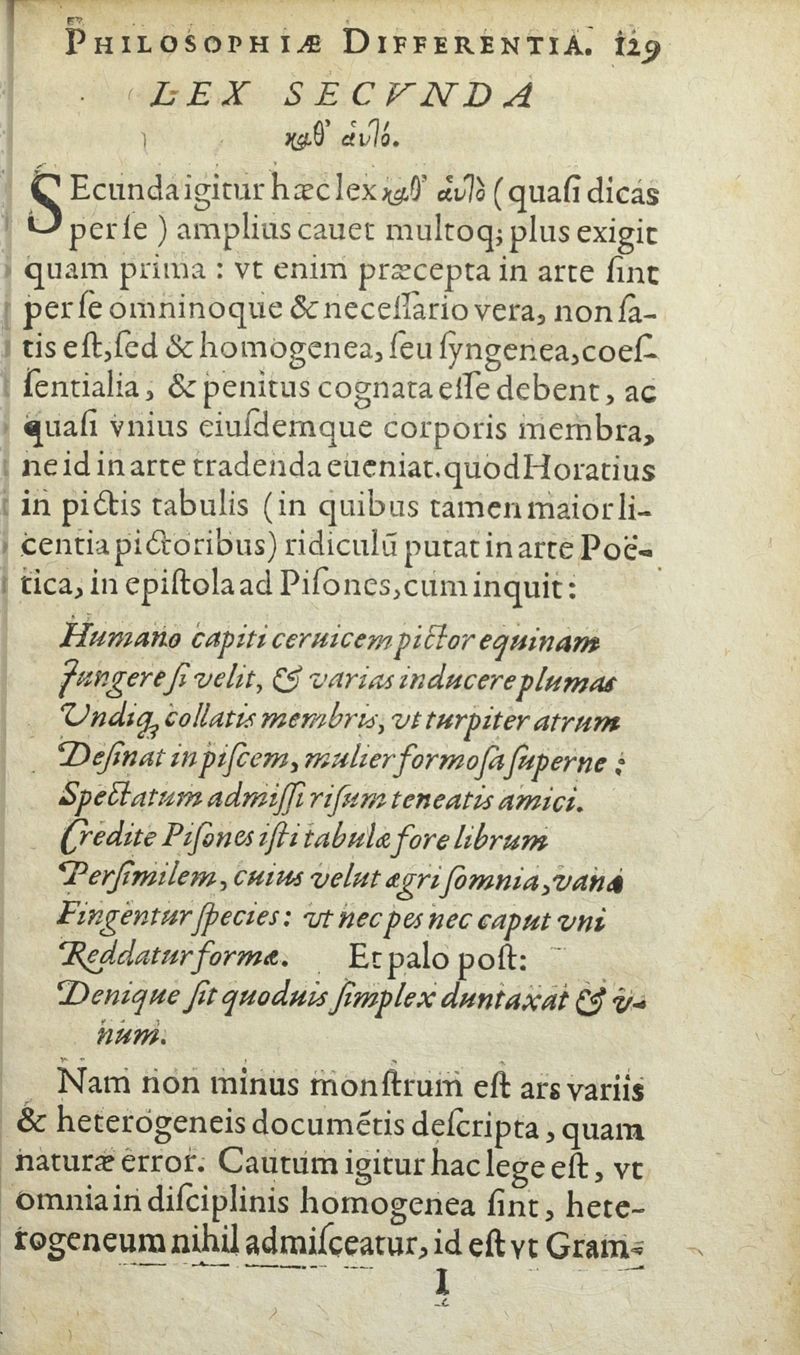 PHILOSOPHIÆ DIFFERENTIA. 129
LEX SECVNDA
καθ' ἁυτό.
SEcunda igitur hæc lex καθ' ἁυτὸ (quaſi dicas
per ſe ) amplius cauet multoq; plus exigit
quam prima : vt enim præcepta in arte ſint
per ſe omninoque & neceſſario vera, non ſa-
tis eſt, ſed & homogenea, ſeu ſyngenea, coeſ-
ſentialia, & penitus cognata eſſe debent, ac
quaſi vnius eiuſdemque corporis membra,
ne id in arte tradenda eueniat. quod Horatius
in pictis tabulis (in quibus tamen maior li-
centia pictoribus) ridiculū putat in arte Poë-
tica, in epiſtola ad Piſones, cum inquit :
Humano capiti ceruicem pictor equinam
Jungere ſi velit, & varias inducere plumas
Vndiq; collatis membris, vt turpiter atrum
Deſinat in piſcem, mulier formoſa ſuperne ;
Spectatum admiſſi riſum teneatis amici.
Credite Piſones iſti tabulæ fore librum
Perſimilem, cuius velut ægri ſomnia, vanæ
Fingentur ſpecies : vt nec pes nec caput vni
Reddatur formæ. Et palo poſt:
Denique ſit quoduis ſimplex duntaxat & v-
num.
Nam non minus monſtrum eſt ars variis
& heterogeneis documētis deſcripta, quam
naturæ error. Cautum igitur hac lege eſt, vt
omnia in diſciplinis homogenea ſint, hete-
rogeneum nihil admiſceatur, id eſt vt Gram-
I